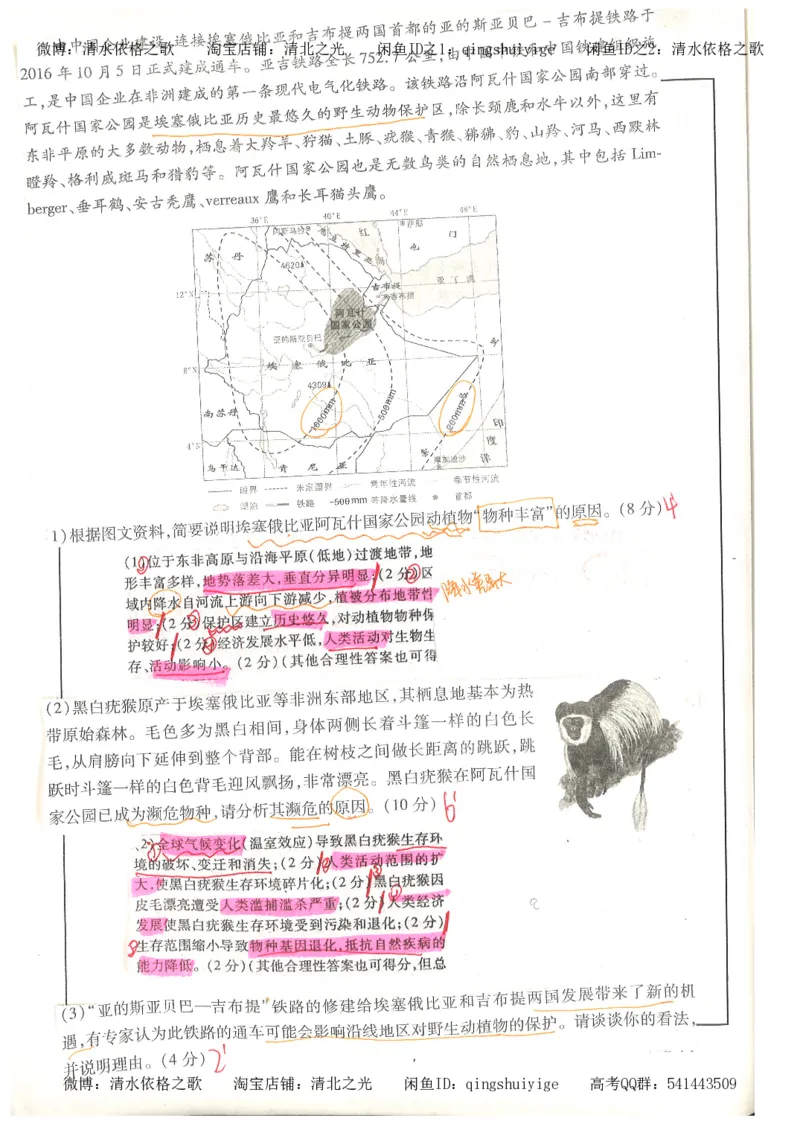 中国企业建设,连接埃塞俄比亚和吉布提两国首都的亚的斯亚贝巴－吉布提铁路于
微博：清水依格之歌 淘宝店铺：清北之光 闲鱼ID之1：qingshuiyige 闲鱼ID之2：清水依格之歌
2016年10月5日正式建成通车。亚吉铁路全长752.7公里,由中国中铁
工,是中国企业在非洲建成的第一条现代电气化铁路。该铁路沿阿瓦什国家公园南部穿过。
阿瓦什国家公园是埃塞俄比亚历史最悠久的野生动物保护区,除长颈鹿和水牛以外,这里有
东非平原的大多数动物,栖息着大羚羊、狞猫、土豚、疣猴、青猴、狒狒、豹、山羚、河马、西默林
瞪羚、格利威斑马和猎豹等。阿瓦什国家公园也是无数鸟类的自然栖息地,其中包括 Lim-
berger、垂耳鹤、安古秃鹰、verreaux 鹰和长耳猫头鹰。
36°E 40°E 44°E 48°E
阿斯马拉 厄立特里亚 红海 萨那 也门
苏丹
4620
吉布提 亚丁湾
12°N
吉布提
阿瓦什
国家公园
亚的斯亚贝巴
8°N 埃塞俄比亚
4309
1000mm 500mm 200mm
南苏丹
4°N
印度洋
摩加迪沙
乌干达 肯尼亚
国界 未定国界 常年性河流 季节性河流
湖泊 铁路 -500mm 等降水量线 首都
1)根据图文资料,简要说明埃塞俄比亚阿瓦什国家公园动植物“物种丰富”的原因。(8分) 4'
(1)位于东非高原与沿海平原(低地)过渡地带,地
形丰富多样,地势落差大,垂直分异明显;(2分)区
域内降水自河流上游向下游减少,植被分布地带性
降水差异大
明显;(2分)保护区建立历史悠久,对动植物物种保
护较好;(2分)经济发展水平低,人类活动对生物生
存、活动影响小。(2分)(其他合理性答案也可得
(2)黑白疣猴原产于埃塞俄比亚等非洲东部地区,其栖息地基本为热
带原始森林。毛色多为黑白相间,身体两侧长着斗篷一样的白色长
毛,从肩膀向下延伸到整个背部。能在树枝之间做长距离的跳跃,跳
跃时斗篷一样的白色背毛迎风飘扬,非常漂亮。黑白疣猴在阿瓦什国
家公园已成为濒危物种,请分析其濒危的原因。(10分) 6'
2)全球气候变化(温室效应)导致黑白疣猴生存环
境的破坏、变迁和消失;(2分)人类活动范围的扩
大,使黑白疣猴生存环境碎片化;(2分)黑白疣猴因
皮毛漂亮遭受人类滥捕滥杀严重;(2分)人类经济
发展使黑白疣猴生存环境受到污染和退化;(2分)
生存范围缩小导致物种基因退化,抵抗自然疾病的
能力降低。(2分)(其他合理性答案也可得分,但总
(3)“亚的斯亚贝巴—吉布提”铁路的修建给埃塞俄比亚和吉布提两国发展带来了新的机
遇,有专家认为此铁路的通车可能会影响沿线地区对野生动植物的保护。请谈谈你的看法,
并说明理由。(4分) 2'
微博：清水依格之歌 淘宝店铺：清北之光 闲鱼ID：qingshuiyige 高考QQ群：541443509